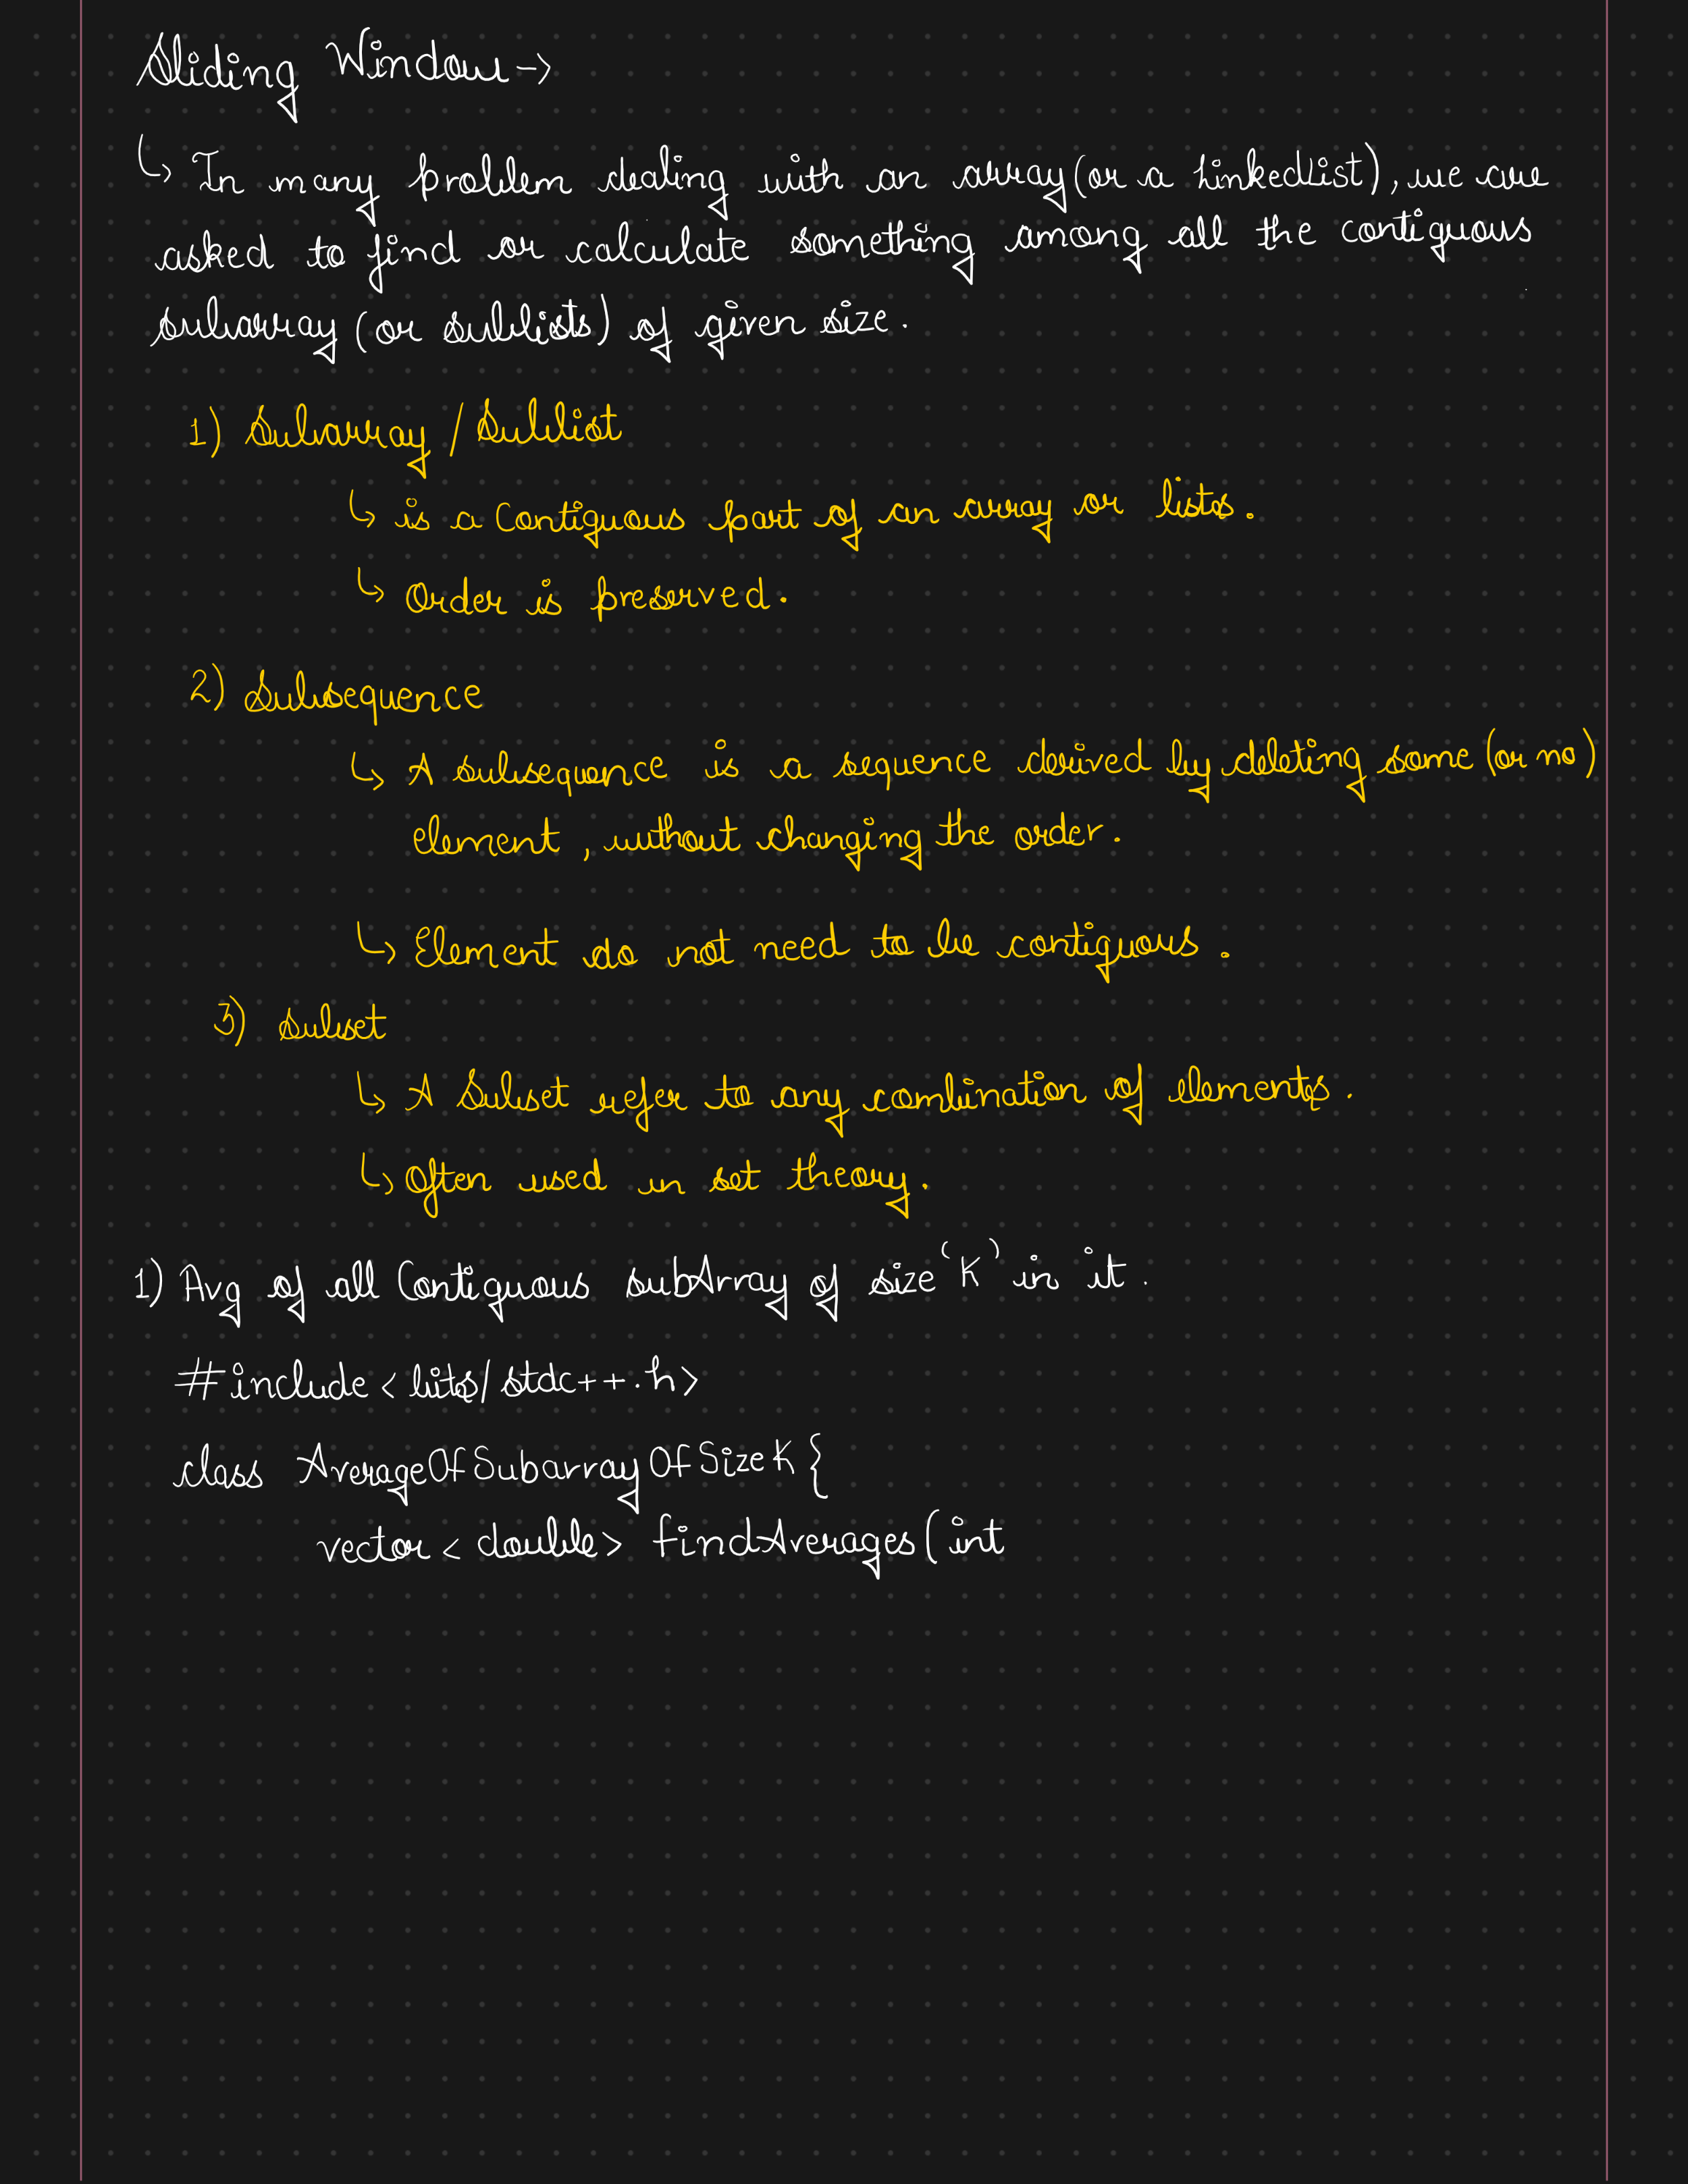 Sliding Window →
↳ In many problem dealing with an array (or a LinkedList), we are
asked to find or calculate something among all the contiguous
subarray (or sublists) of given size.
1) Subarray / Sublist
↳ is a Contiguous part of an array or lists.
↳ Order is preserved.
2) Subsequence
↳ A subsequence is a sequence derived by deleting some (or no)
element, without changing the order.
↳ Element do not need to be contiguous.
3) subset
↳ A Subset refer to any combination of elements.
↳ Often used in set theory.
1) Avg of all Contiguous subArray of size 'K' in it.
#include <bits/stdc++.h>
class AverageOfSubarrayOfSizeK {
vector < double > findAverages (int